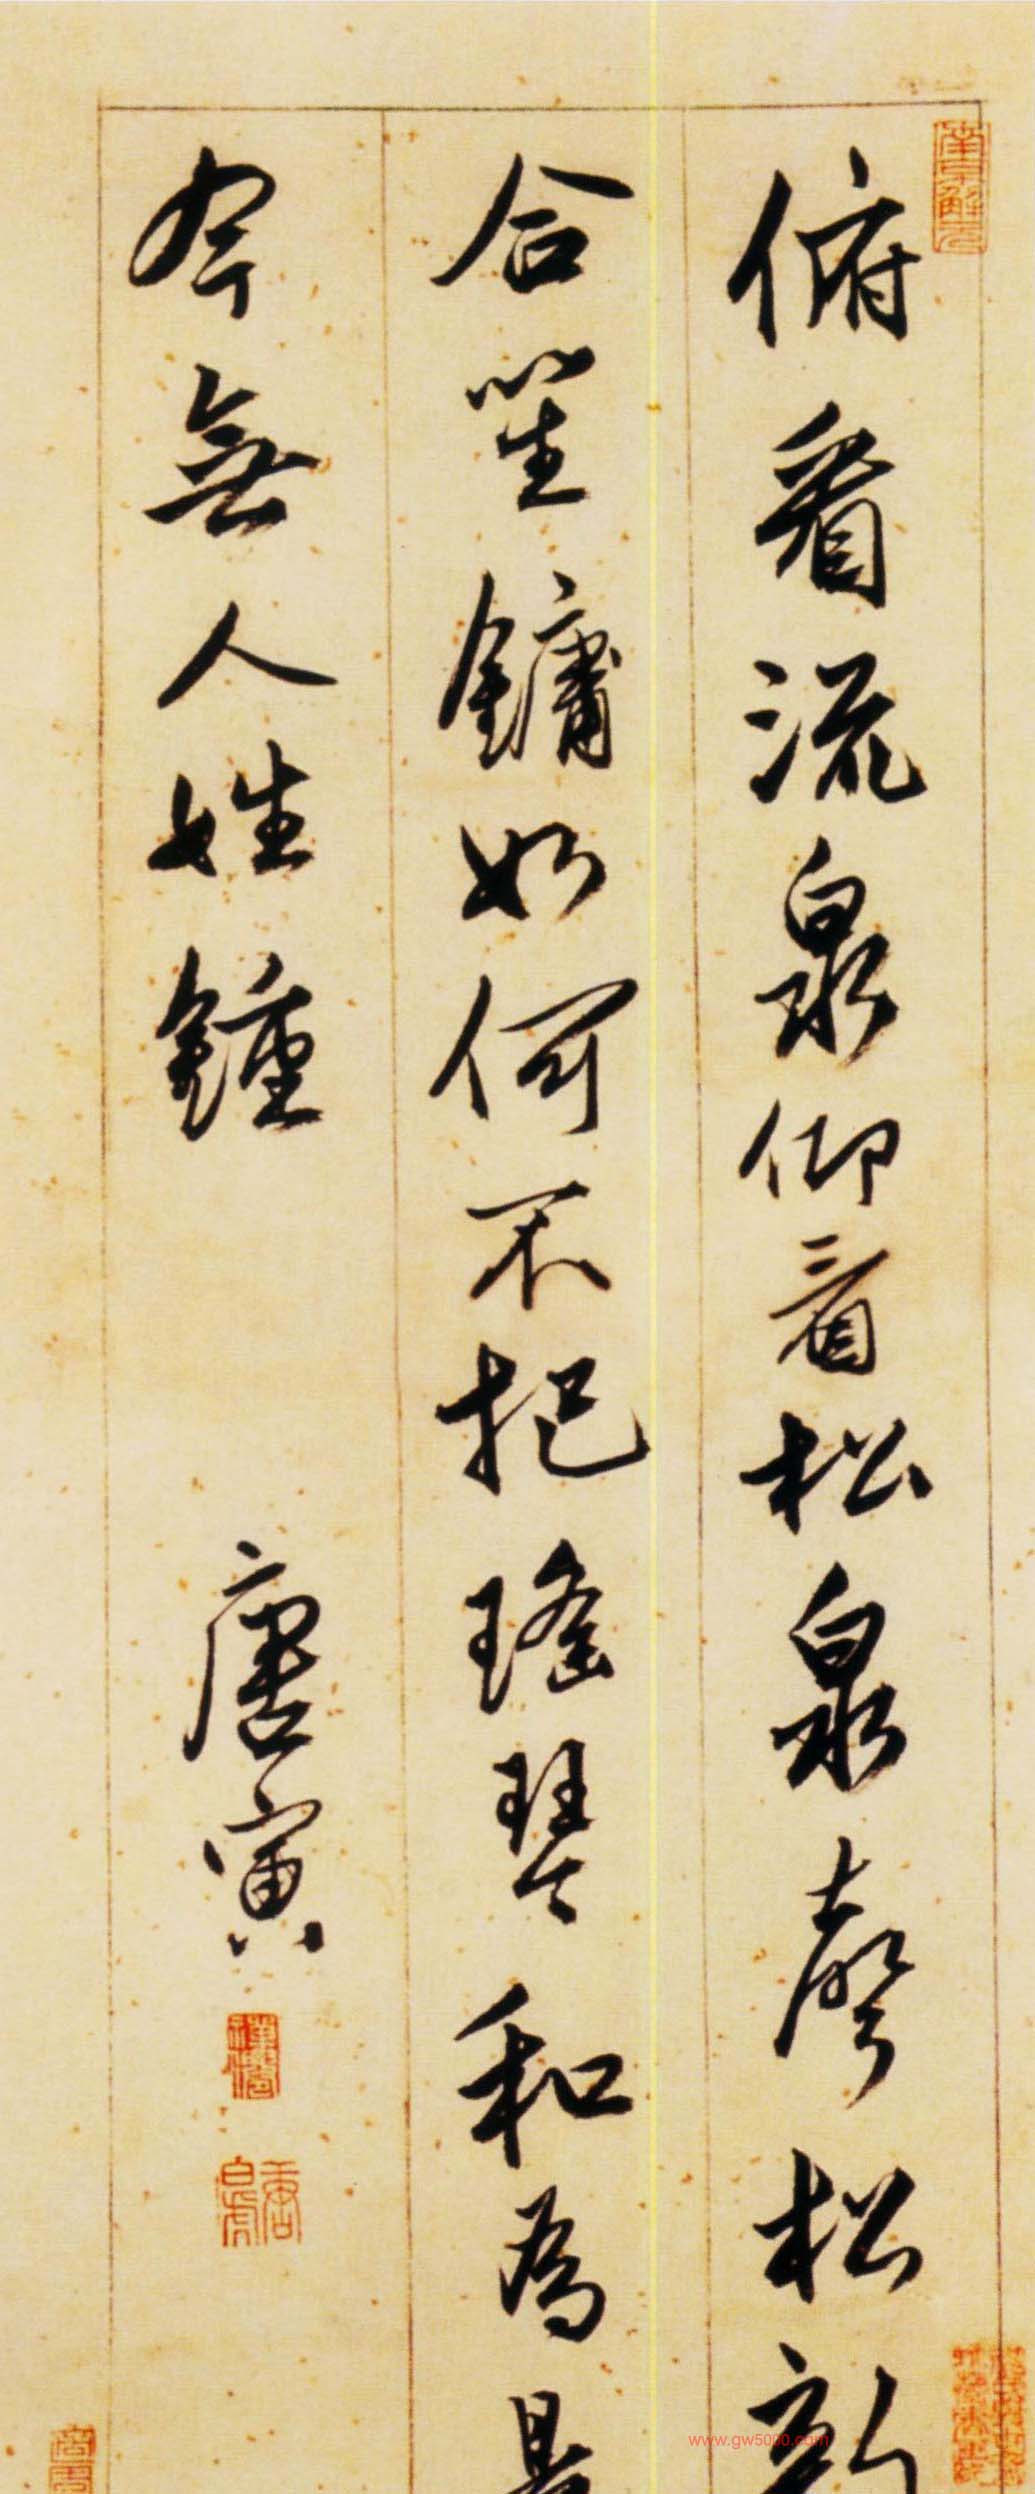 俯看流泉仰看松泉聲松韵
合笙鏞如何不把瑤琴和為是
今無人姓鍾
唐寅
南京解元
www.gw5000.com